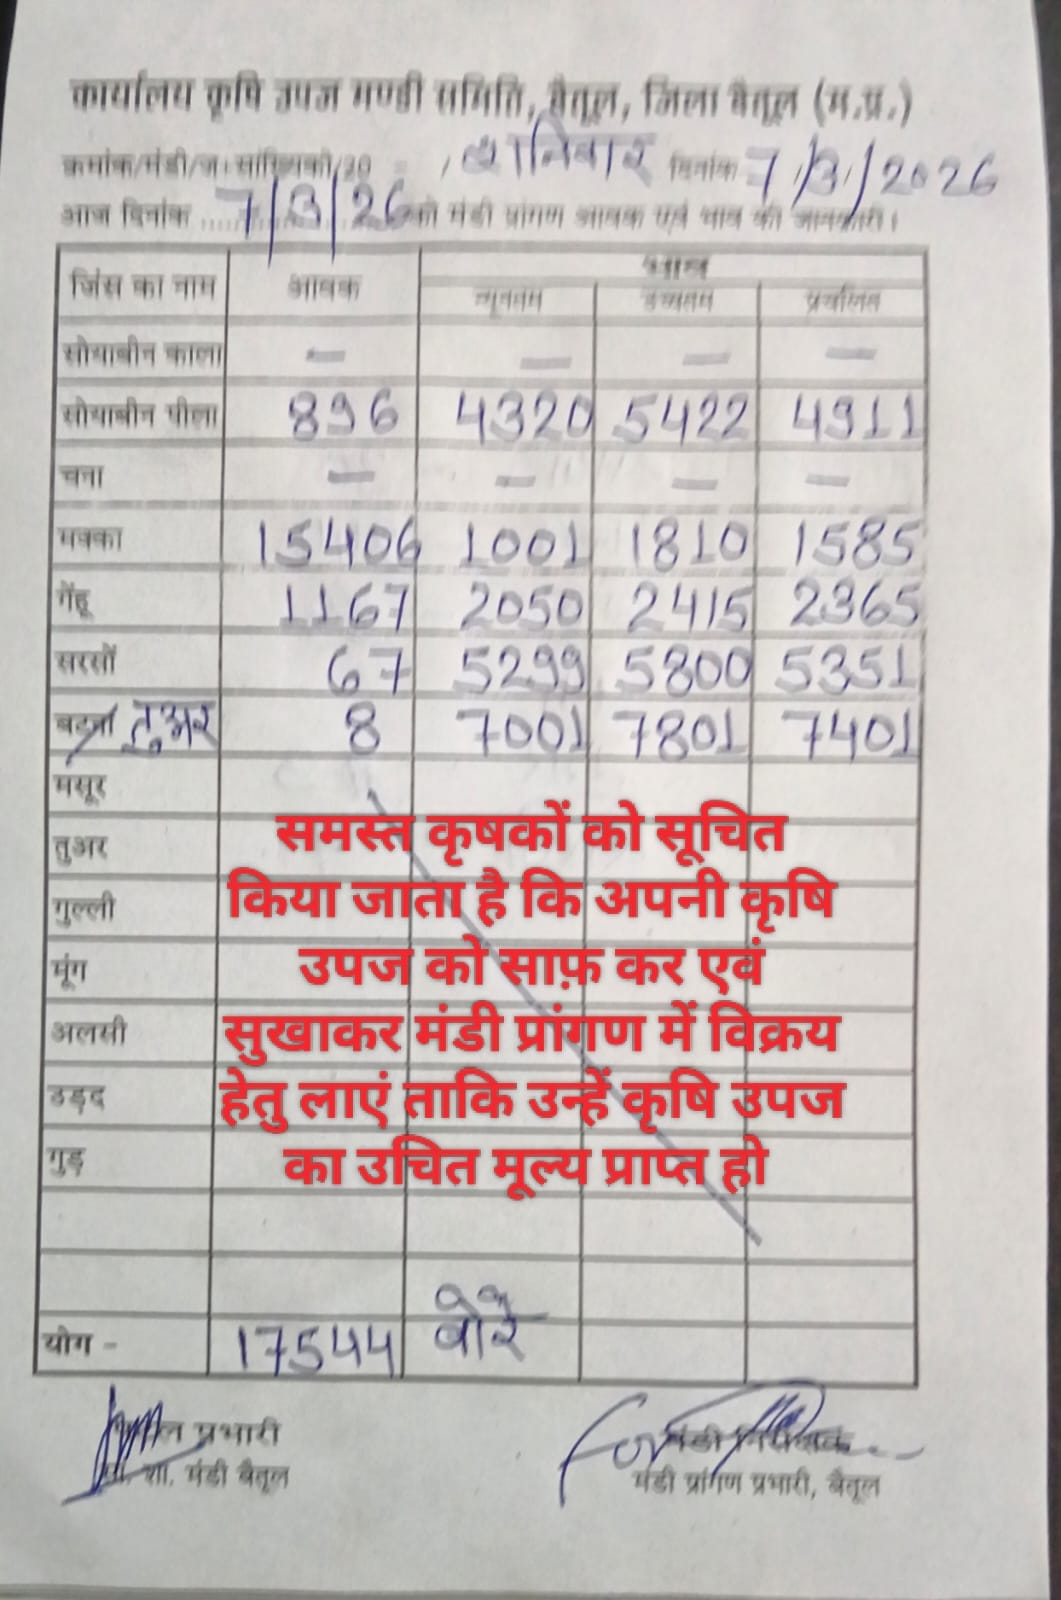 कार्यालय कृषि उपज मण्डी समिति, बैतूल, जिला बैतूल (म.प्र.)
क्रमांक/मंडी/ज. सांख्यिकी/20 / शनिवार दिनांक 7/3/2026
आज दिनांक ..... 7/3/26 को मंडी प्रांगण आवक एवं भाव की जानकारी।
जिंस का नाम आवक भाव
न्यूनतम उच्चतम प्रचलित
सोयाबीन काला — — — —
सोयाबीन पीला 896 4320 5422 4911
चना — — — —
मक्का 15406 1001 1810 1585
गेंहू 1167 2050 2415 2365
सरसों 67 5299 5800 5351
बटरा तुअर 8 7001 7801 7401
मसूर
तुअर
गुल्ली
मूंग
अलसी
उड़द
गुड़
समस्त कृषकों को सूचित
किया जाता है कि अपनी कृषि
उपज को साफ़ कर एवं
सुखाकर मंडी प्रांगण में विक्रय
हेतु लाएं ताकि उन्हें कृषि उपज
का उचित मूल्य प्राप्त हो
योग - 17544 बोरे
प्रभारी
शा. मंडी बैतूल
For मंडी निरीक्षक
मंडी प्रांगण प्रभारी, बैतूल